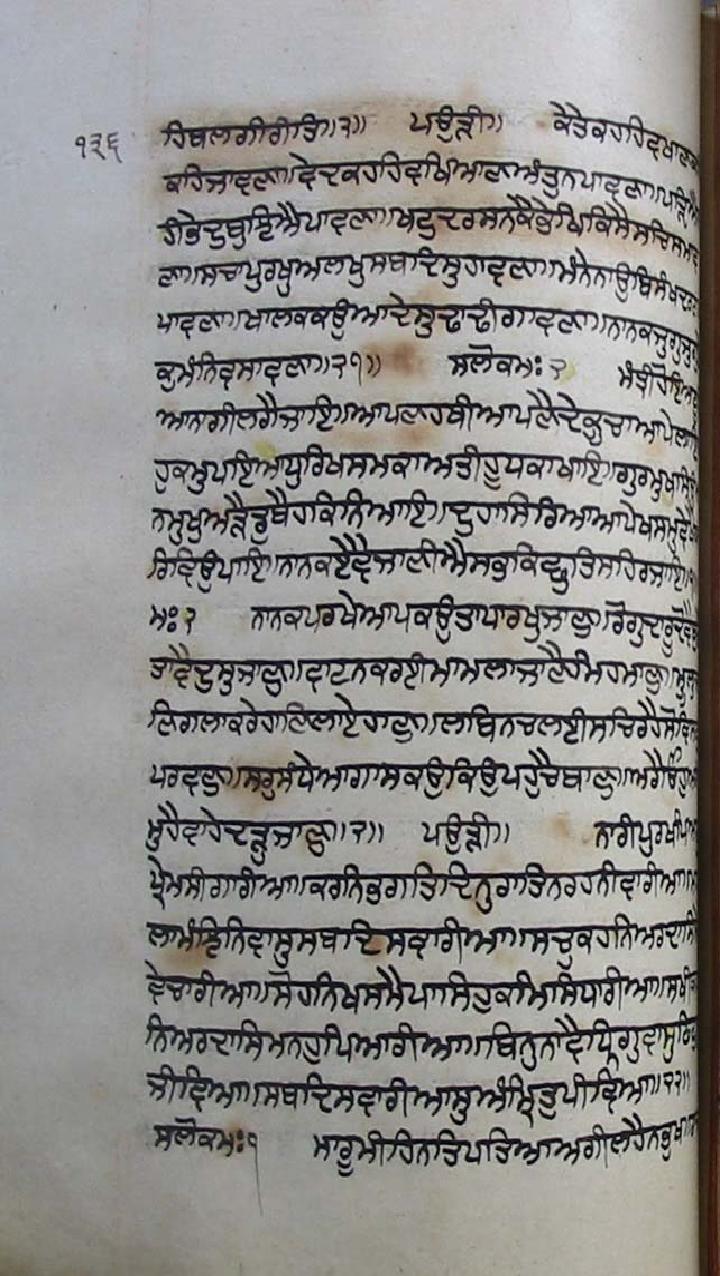 ੧੩੬ ਹਿਬਲਗੀਰੀਤਿ॥੨॥ ਪਉੜੀ॥ ਕੇਤੇਕਹਹਿਵਖਾਣਕ
ਕਹਿਜਾਵਣਾ॥ਵੇਦਕਹਹਿਵਖਿਆਣਅੰਤੁਨਪਾਵਣਾ॥ਪੜਿਐ
ਹੀਭੇਦੁਬੁਝਿਐਪਾਵਣਾ॥ਖਟੁਦਰਸਨਕੈਭੇਖਿਕਿਸੈਸਚਿਸਮਾਵ
ਣਾ॥ਸਚਾਪੁਰਖੁਅਲਖੁਸਬਦਿਸੁਹਾਵਣਾ॥ਮੰਨੇਨਾਉਬਿਸੰਖਦਰ
ਪਾਵਣਾ॥ਖਾਲਕਕਉਆਦੇਸੁਢਾਢੀਗਾਵਣਾ॥ਨਾਨਕਜੁਗੁਜੁਗੁ
ਕੁਮੰਨਿਵਸਾਵਣਾ॥੨੧॥ ਸਲੋਕਮਃ੨ ਮੰਤ੍ਰੀਹੋਇਅ
ਆਨਾਗੀਲਗੈਜਾਇ॥ਆਪਣਹਥੀਆਪਣੈਦੇਕੂਚਾਆਪੇਲਾਇ
ਹੁਕਮੁਪਇਆਧੁਰਿਖਸਮਕਾਅਤੀਹੂਧਕਾਖਾਇ॥ਗੁਰਮੁਖਸਿਉ
ਨਮੁਖੁਅੜੈਡੁਬੈਹਕਿਨਿਆਇ॥ਦੁਹਾਸਿਰਿਆਆਪੇਖਸਮੁਵੇਖੈ
ਰਿਵਿਉਪਾਇ॥ਨਾਨਕਏਵੈਜਾਣੀਐਸਭਕਿਛੁਤਿਸਹਿਰਜਾਇ॥੧
ਮਃ੨ ਨਾਨਕਪਰਖੇਆਪਕਉਤਾਪਾਰਖੁਜਾਣੁ॥ਰੋਗੁਦਾਰੂਦੋਵੈ
ਤਾਵੈਦੁਸੁਜਾਣੁ॥ਵਾਟਨਕਰਈਮਾਮਲਾਜਾਣੈਮਿਹਮਾਣੁ॥ਮੂਲੁ
ਣਿਗਲਾਕਰੇਹਾਣਿਲਾਏਹਾਣੁ॥ਲਬਿਨਚਲਈਸਚਿਰਹੈਸੋਵਿਸ
ਪਰਵਾਣੁ॥ਸਰੁਸੰਧੇਆਗਾਸਕਉਕਿਉਪਹੁਚੈਬਾਣੁ॥ਅਗੈਓਹੁਅ
ਮੁਹੈਵਾਹੇਦੜੁਜਾਣੁ॥੨॥ ਪਉੜੀ॥ ਨਾਰੀਪੁਰਖਪਿਆ
ਪ੍ਰੇਮਸੀਗਾਰੀਆ॥ਕਰਨਿਭਗਤਿਦਿਨੁਰਾਤਿਨਰਹਨੀਵਾਰੀਆ॥ਮ
ਲਾਮੰਝਿਨਿਵਾਸੁਸਬਦਿਸਵਾਰੀਆ॥ਸਚੁਕਹਨਿਅਰਦਾਸਿ
ਵੇਚਾਰੀਆ॥ਸੋਹਨਿਖਸਮੈਪਾਸਿਹੁਕਮਿਸਿਧਾਰੀਆ॥ਸਖੀਕ
ਨਿਅਰਦਾਸਿਮਨਹੁਪਿਆਰੀਆ॥ਬਿਨੁਨਾਵੈਧ੍ਰਿਗੁਵਾਸੁਫਿਟੁ
ਜੀਵਿਆ॥ਸਬਦਿਸਵਾਰੀਆਸੁਅੰਮ੍ਰਿਤੁਪੀਵਿਆ॥੨੨॥
ਸਲੋਕਮਃ੧ ਮਾਰੂਮੀਹਿਨਤਿਪਤਿਆਅਗੀਲਹੈਨਭੁਖ